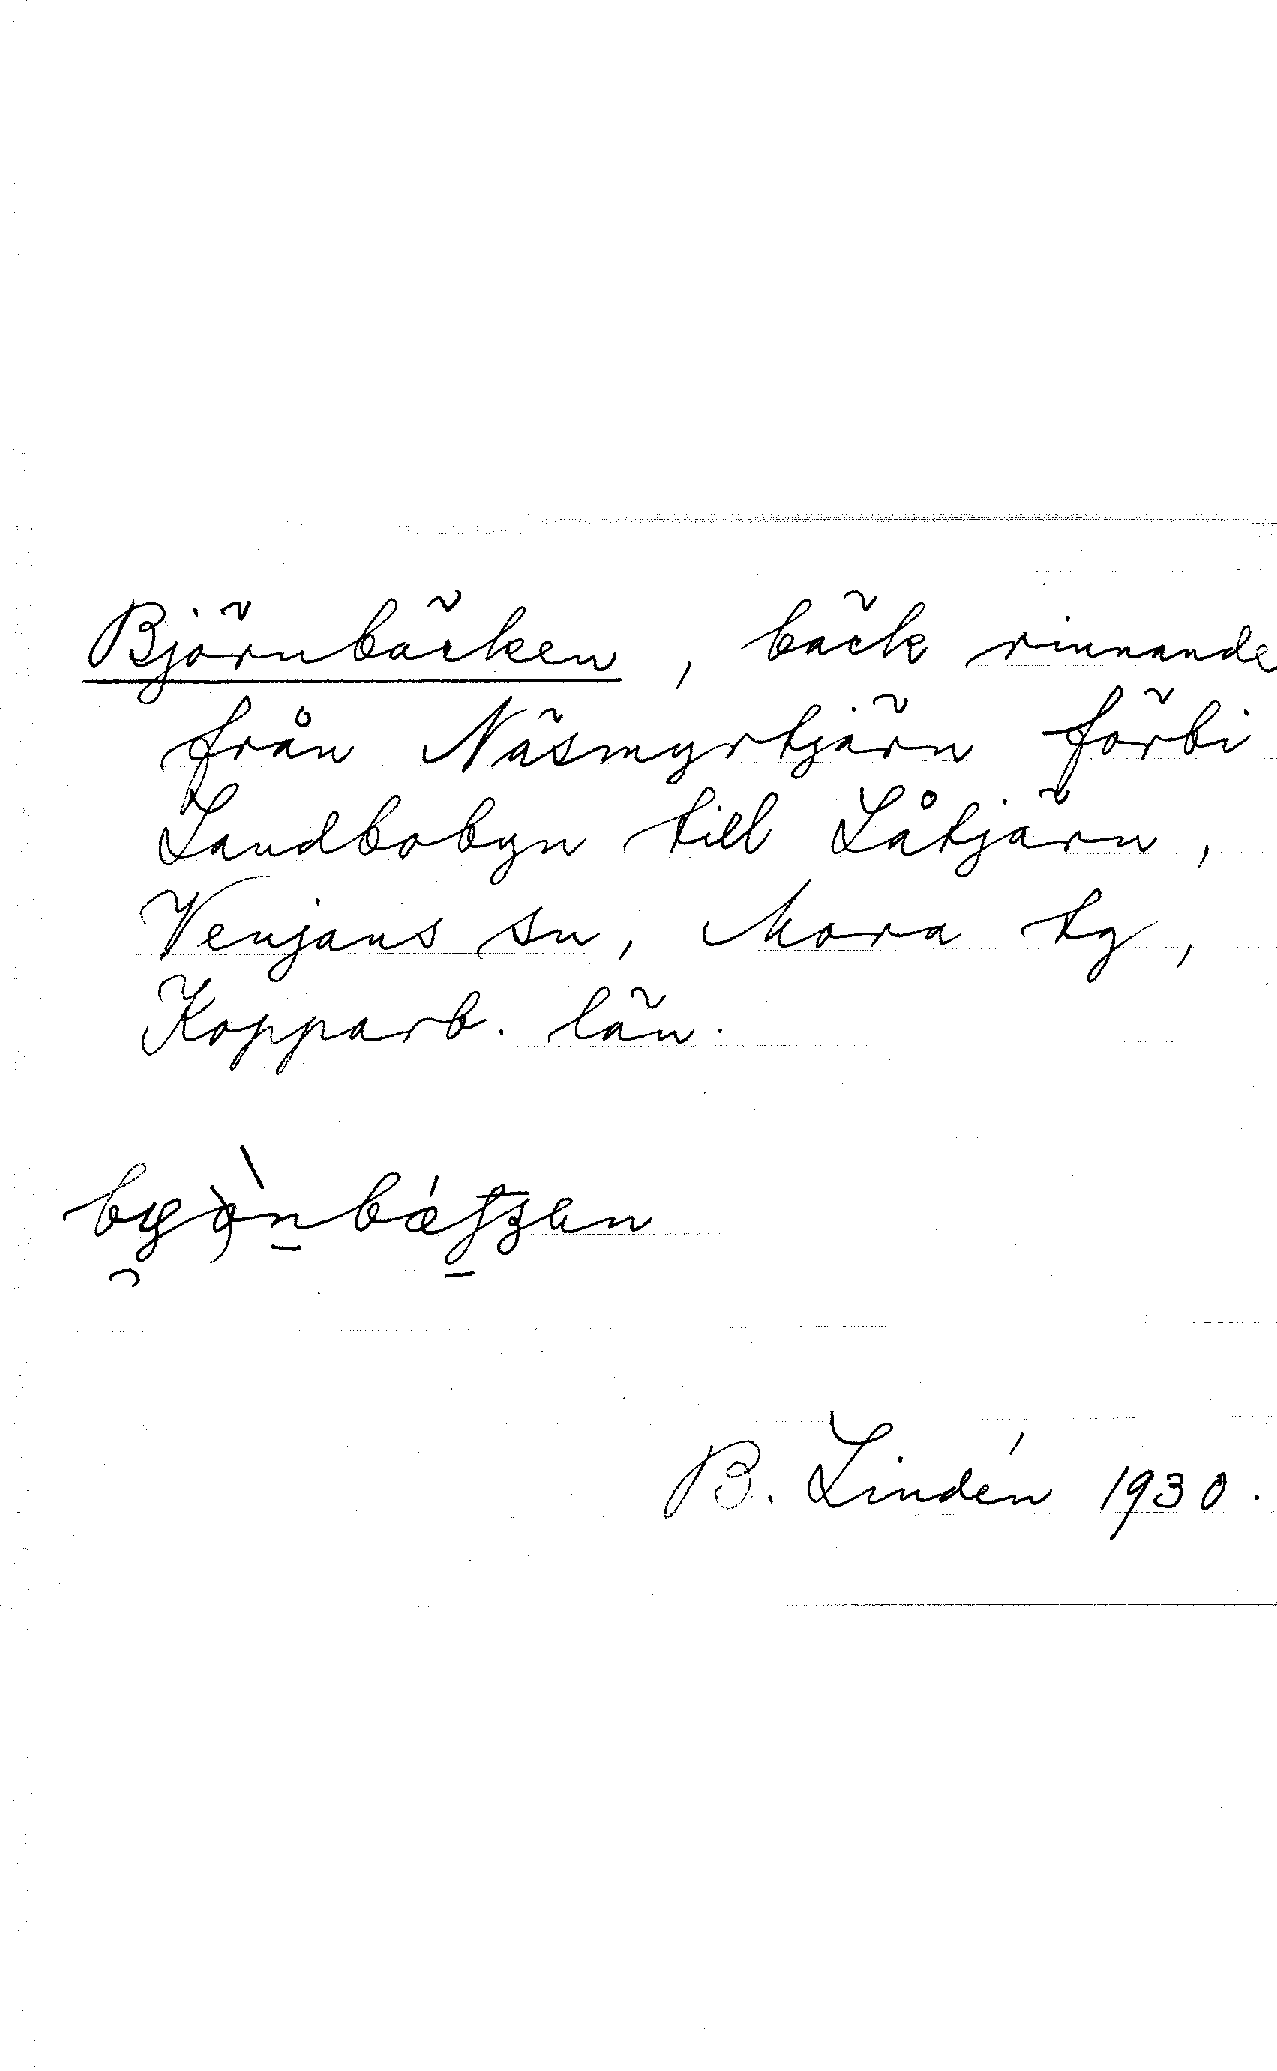 Björnbäcken, bäck rinnande
från Näsmyrtjärn förbi
Landbobyn till Låtjärn,
Venjans sn, Mora tg,
Kopparb. län.
B. Lindén 1930.